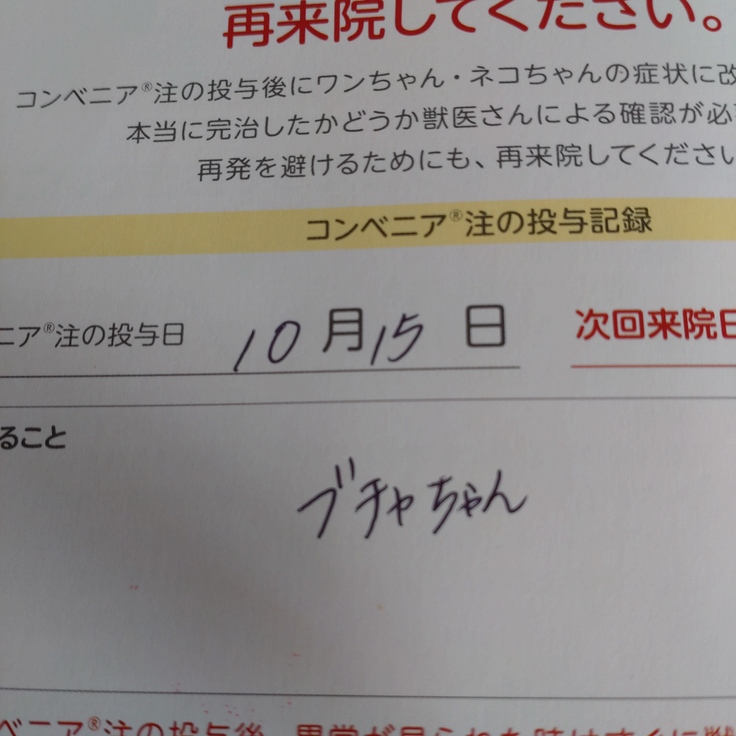 再来院してください。
コンベニア®注の投与後にワンちゃん・ネコちゃんの症状に改
本当に完治したかどうか獣医さんによる確認が必
再発を避けるためにも、再来院してください
コンベニア®注の投与記録
ニア®注の投与日 10月15日 次回来院日
ること
ブチャちゃん
ベニア®注の投与後、異常が見られた時はすぐに獣